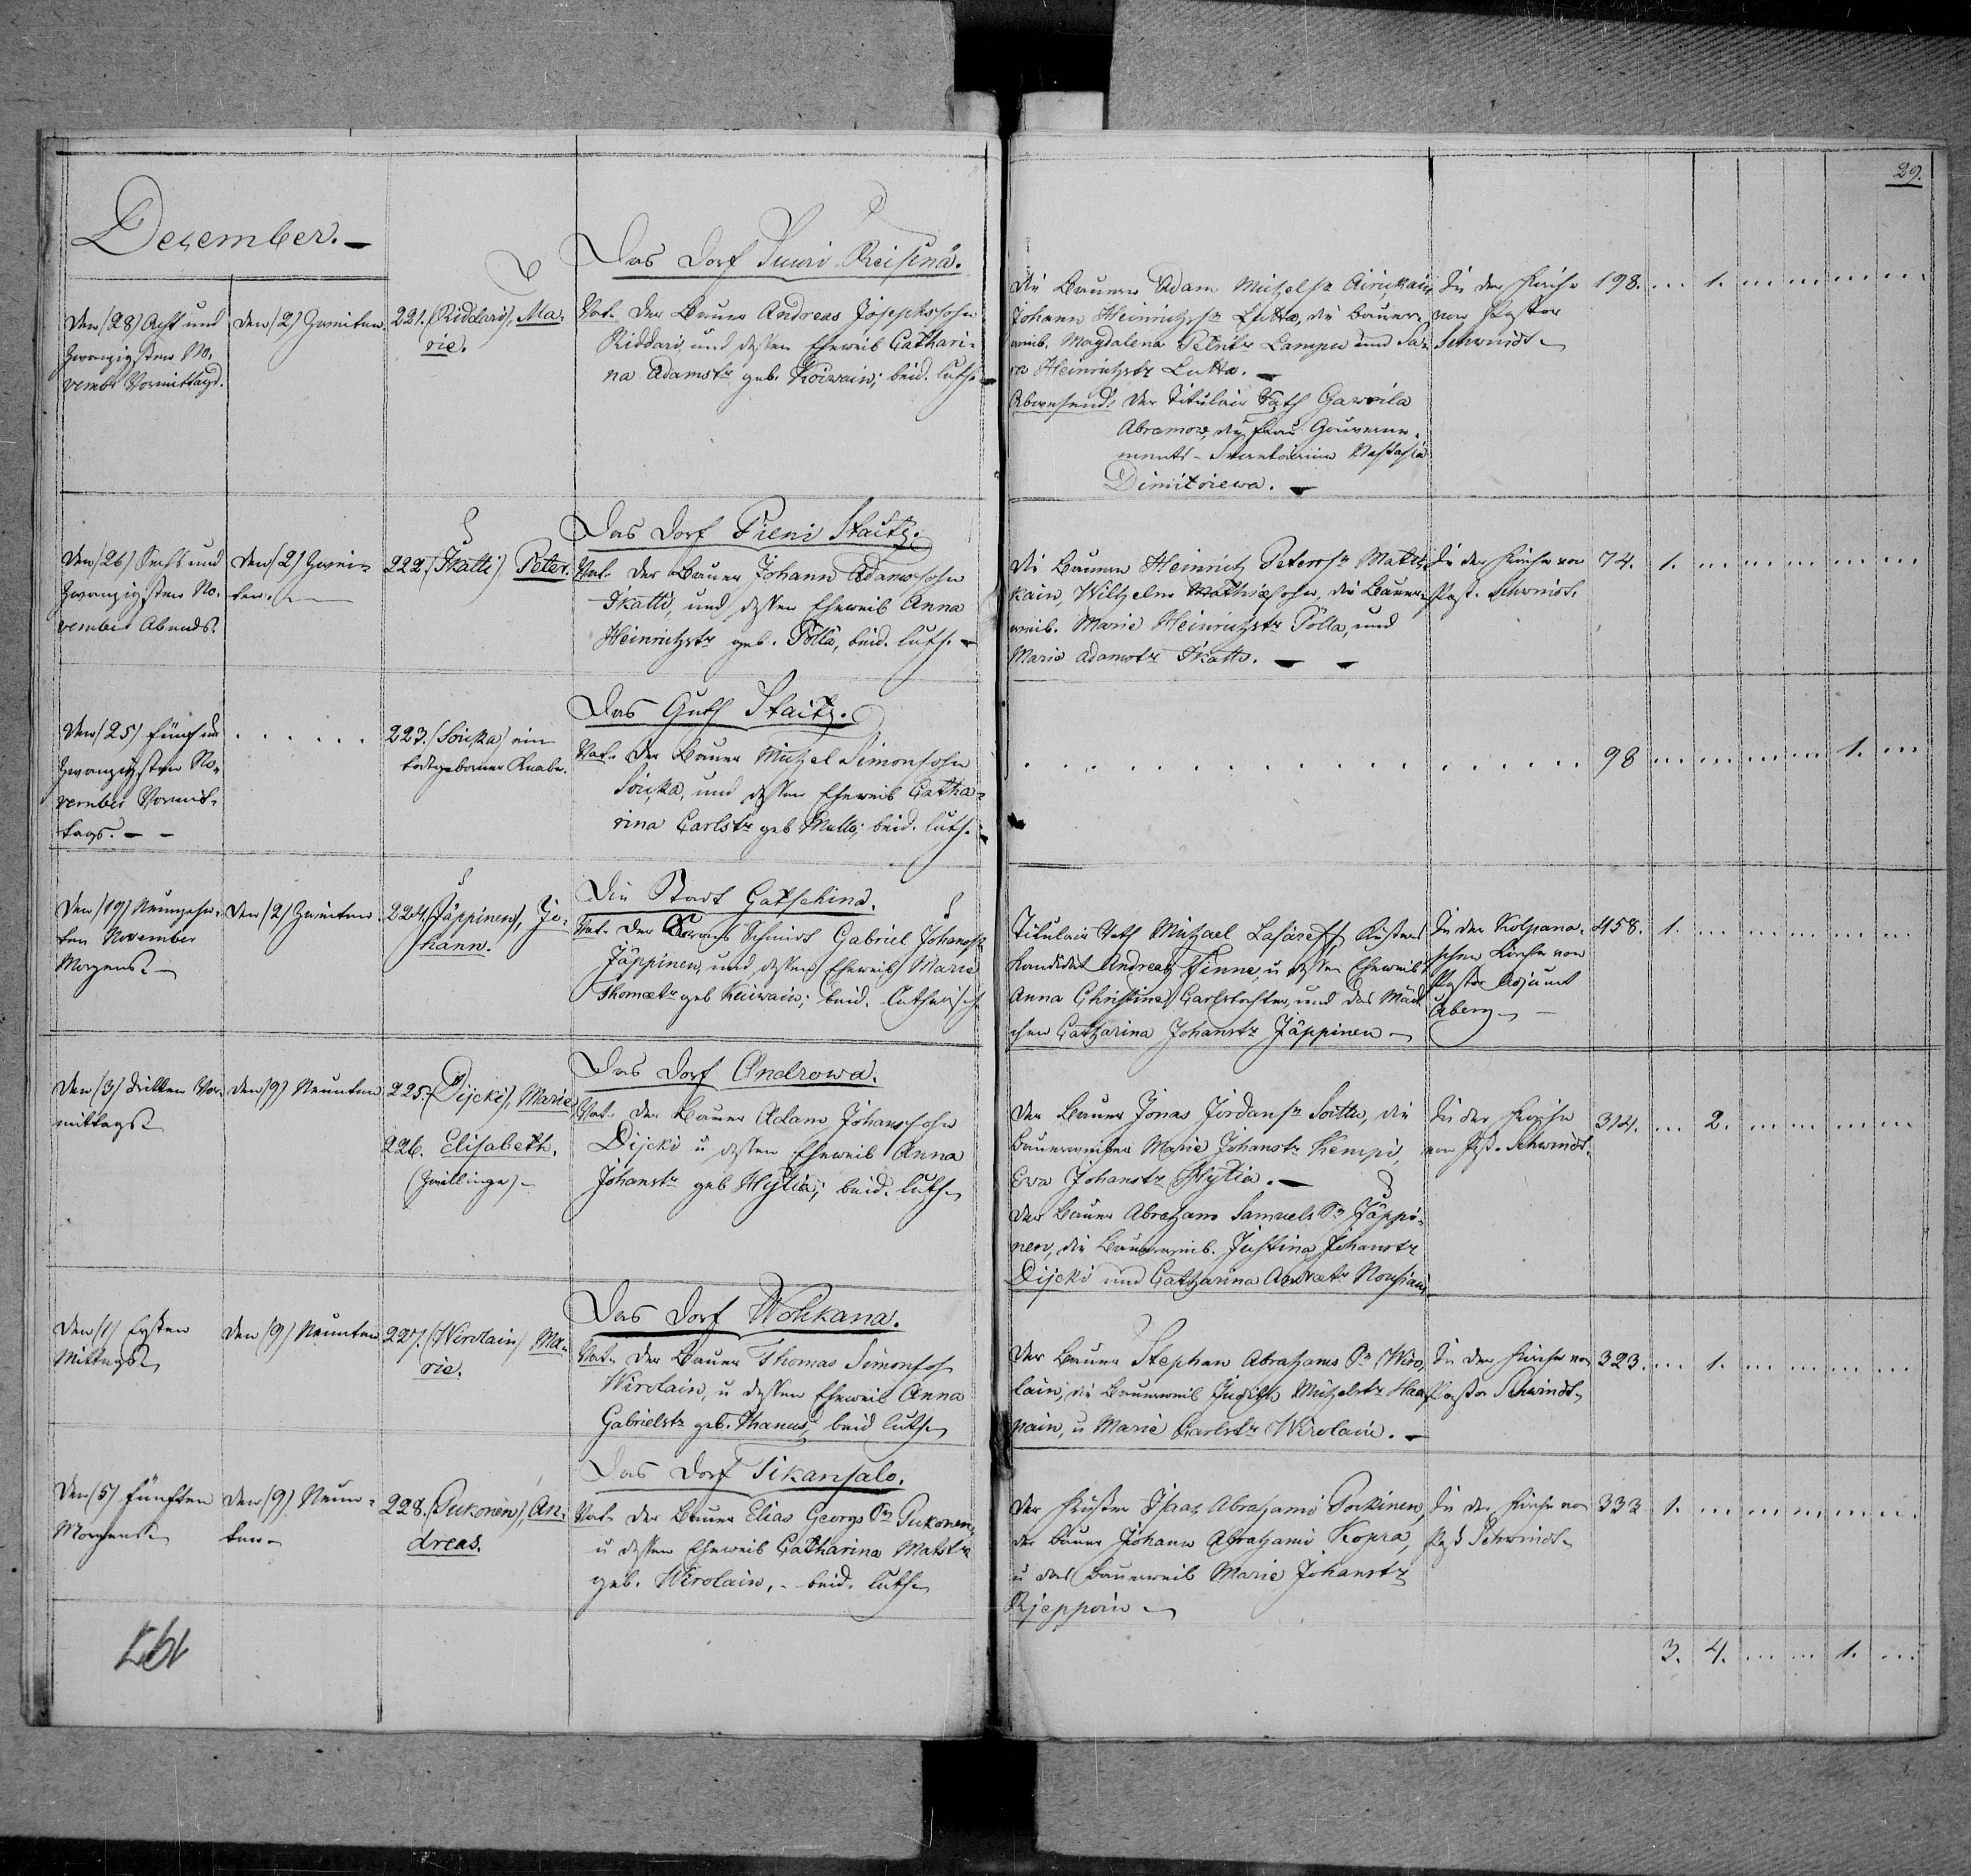 29.
December.
Das Dorf Suuri Reisinä.
Den (28) Acht und
zwanzigsten No-
vembr Vormittags.
Den (2) Zweiten
221. (Riddari), Ma-
rie.
Vat. Der Bauer Andreas Josephssohn
Riddari, und dessen Eheweib Cathari-
na Adamstr geb. Koiwain; beid. luth.
Die Bauern Adam Michelsn
Johann Heinrichssn Lutta, die Bauer-
weib. Magdalena Lampu und Sa-
ra Heinrichstr Lutta.
Abwesend: Der Titulair Rath Gawrila
Abramow, die Frau Gouverne-
ments-Secretairin Nastasia
Dimitriewa.
In der Kirche
von Pastor
Schwindt
198. 1.
Das Dorf Pieni Staitz.
Den (26) Sechs und
zwanzigsten No-
vember Abends.
Den (2) Zwei-
ten.
222. (Skatti), Peter.
Vat. Der Bauer Johann Adamssohn
Skatti, und dessen Eheweib Anna
Heinrichstr geb. Pölla, beid. luth.
Die Bauern Heinrich Peterssn Matti-
kain, Wilhelm Mathiassohn, die Bauer-
weib. Marie Heinrichstr Pölla, und
Maria Adamstr Skatti.
In der Kirche von
Past. Schwindt.
74. 1.
Das Guth Staitz.
Den (25) Fünf und
zwanzigsten No-
vember Vormit-
tags.
223. (Souka) ein
todtgeborner Knabe.
Vat. Der Bauer Michel Simonsohn
Souka, und dessen Eheweib Catha-
rina Carlstr geb Mullo; beid. luth.
98 1.
Die Stadt Gatschina.
Den (19) Neunzehn-
ten November
Morgens.
Den (2) Zweiten.
224. (Jäppinen), Jo-
hann.
Vat. Der Schmidt Gabriel Johanssn
Jäppinen, und dessen Eheweib Marie
Thomastr geb Kuiwain; beid. lutherisch
Titulair Rath Michael Lasareff, Küster
Kandidat Andreas Finne, u dessen Eheweib
Anna Christine Carlstochter, und das Mäd-
chen Catharina Johanstr Jäppinen
In der Kolpana-
schen Kirche von
Pastor Adjunct
Åberg
458. 1.
Das Dorf Androwa.
Den (3) Dritten Vor-
mittags
Den (9) Neunten
225. (Dijcki), Marie
226. Elisabeth.
(Zwillinge)
Vat. Der Bauer Adam Johanssohn
Dijcki u dessen Eheweib Anna
Johanstr geb Hytiä; beid. luth.
Der Bauer Jonas Jordansn Soittu, die
Bauerweiber Marie Johanstr Kempi,
Eva Johanstr Hytiä.
Der Bauer Abraham Samuels Sn Jäppi-
nen, die Bauerweib. Justina Johanstr
Dijcki und Catharina Nousiain
In der Kirche
von Past. Schwindt.
314. 2.
Das Dorf Wohkana.
Den (1) Ersten
Mittags
Den (9) Neunten
227. (Wirolain) Ma-
rie.
Vat. Der Bauer Thomas Simonsoh
Wirolain, u dessen Eheweib Anna
Gabrielstr geb. Thanus, beid luth.
Der Bauer Stephan Abrahams Sn Wiro-
lain, die Bauerweib Judith Michelstr Haa-
pain, u Marie Carlstr Wirolain.
In der Kirche von
Pastor Schwindt
323. 1.
Das Dorf Sikansalo.
Den (5) Fünften
Morgens
Den (9) Neun-
ten
228. (Pukonen), An-
dreas.
Vat. Der Bauer Elias Georgs Sn Pukonen,
u dessen Eheweib Catharina Matstr
geb. Wirolain, beid. luth.
Der Küster Isaac Abrahams Porkinen,
der Bauer Johann Abrahams Kopra,
u das Bauerweib Marie Johanstr
Rjeppoin
In der Kirche von
Past Schwindt
333 1.
197
3. 4. 1.